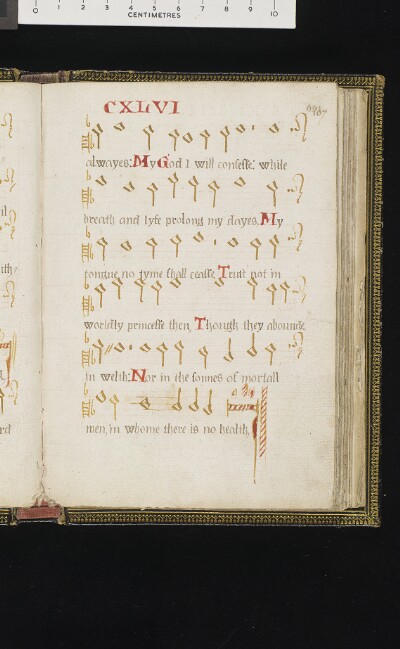 0 1 2 3 4 5 6 7 8 9 10
CENTIMETRES
CXLVI
alwayes: My God I will confesse: while
breath and lyfe prolong my dayes. My
tongue no tyme shall ceasse. Trust not in
worldly princesse then, Though they abounde
in welth: Nor in the sonnes of mortall
men, in whome there is no health.